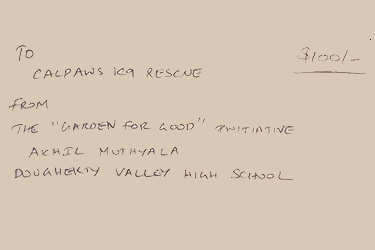 TO
$100/-
CALPAWS K9 RESCUE
from
THE "GARDEN FOR GOOD" INITIATIVE
AKHIL MUTHYALA
DOUGHERTY VALLEY HIGH SCHOOL